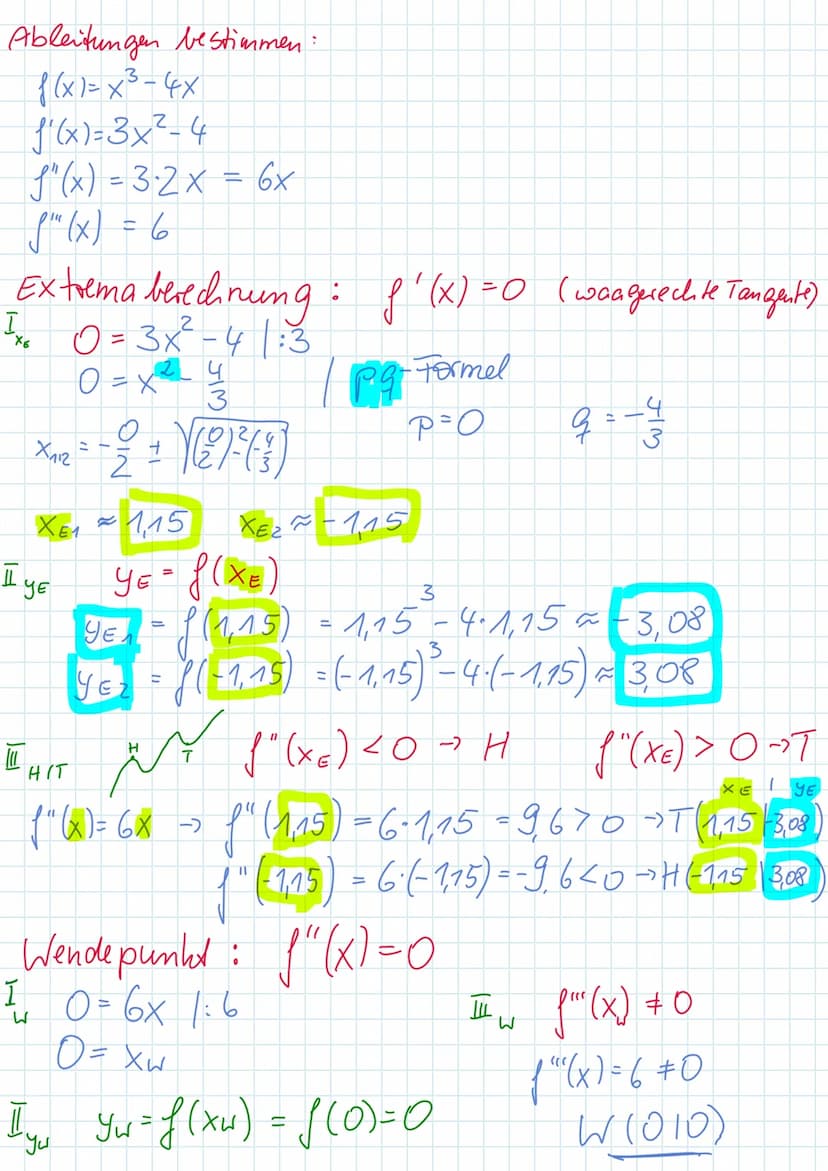 Ableitungen bestimmen:
f(x)= x³ - 4x
f'(x)=3x² - 4
f''(x) = 3·2x = 6x
f'''(x) = 6
Extremaberechnung: f'(x)=0 (waagerechte Tangente)
I xE 0 = 3x² - 4 |:3
0 = x² - 4/3 | pq-Formel
x1/2 = - 0/2 ± √((0/2)² - (-4/3)) p=0 q = -4/3
xE1 ≈ 1,15 xE2 ≈ -1,15
II yE yE = f(xE)
yE1 = f(1,15) = 1,15³ - 4·1,15 ≈ -3,08
yE2 = f(-1,15) = (-1,15)³ - 4·(-1,15) ≈ 3,08
III H/T H T f''(xE) < 0 → H f''(xE) > 0 → T
xE | yE
f''(x) = 6x → f''(1,15) = 6·1,15 = 9,6 > 0 → T(1,15|-3,08)
f''(-1,15) = 6·(-1,15) = -9,6 < 0 → H(-1,15|3,08)
Wendepunkt: f''(x)=0
I W 0 = 6x |:6 III W f'''(xW) ≠ 0
0 = xW
f'''(x) = 6 ≠ 0
II yW yW = f(xW) = f(0)=0 W(0|0)